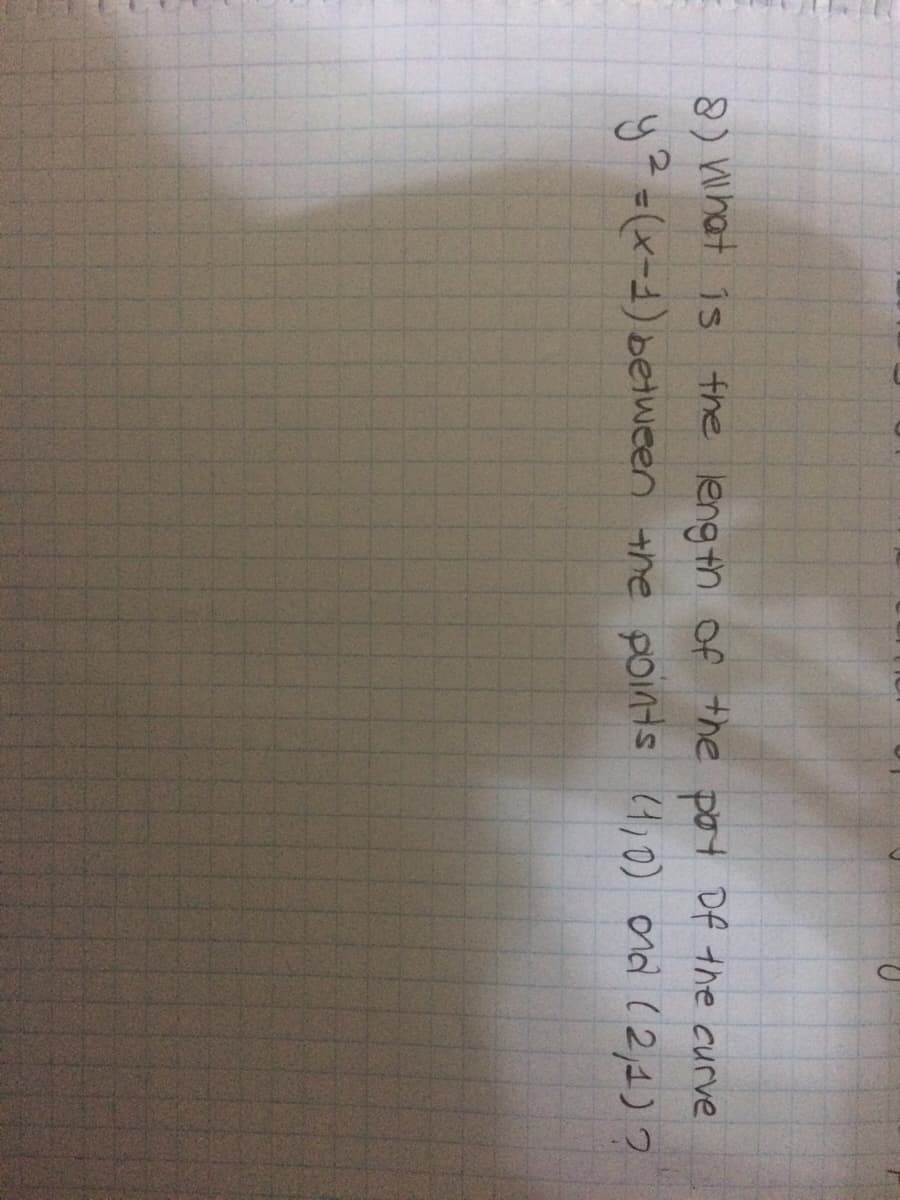 8) What is the length of the part of the curve
y² = (x-1) between the points (1,0) and (2,1) ?